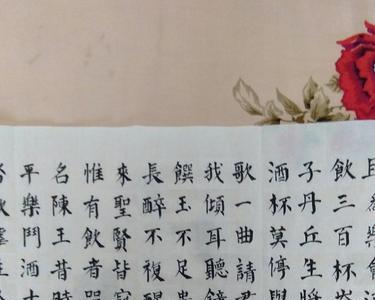 飲三百杯
子丹丘生將
酒杯莫停與
歌一曲請君
我傾耳聽鐘
饌玉不足貴
長醉不複醒
來聖賢皆寂
惟有飲者留
名陳王昔時
平樂鬥酒十